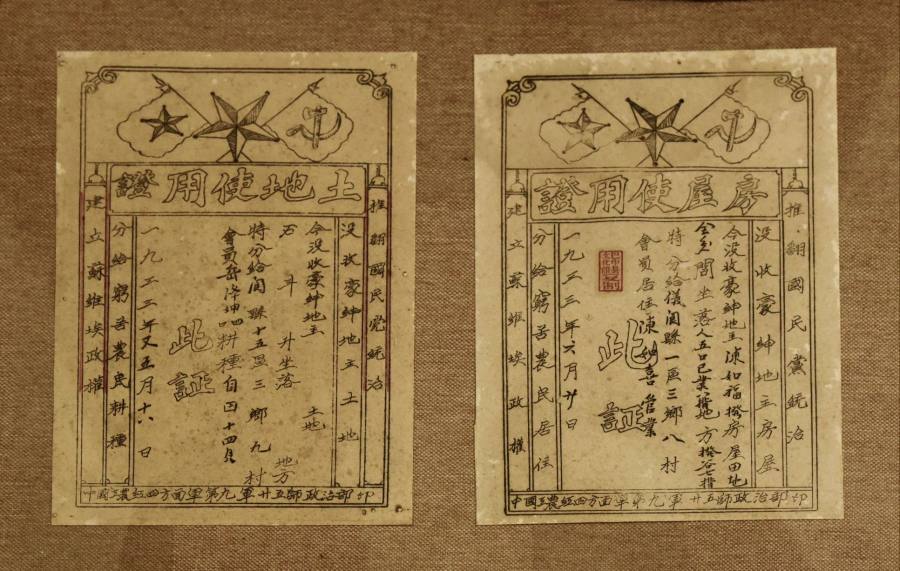 土地使用證
推翻國民党統治
没收豪紳地主土地
今没收豪紳地主 土地
五斗 升坐落 地方
特分給閬縣十五區三鄉九村
會員 耕種自四十四
此証
一九三三年又五月十八日
分給窮苦農民耕種
建立蘇維埃政權
中國工農紅四方面軍第九軍廿五師政治部印
房屋使用證
推翻國民黨統治
没收豪紳地主房屋
今没收豪紳地主 如福 房屋田地
間坐落人五口已業 地方
特分給儀閬縣一區三鄉八村
會員居住 管業
此証
一九三三年六月廿日
分給窮苦農民居住
建立蘇維埃政權
中國工農紅四方面軍第九軍廿五師政治部印